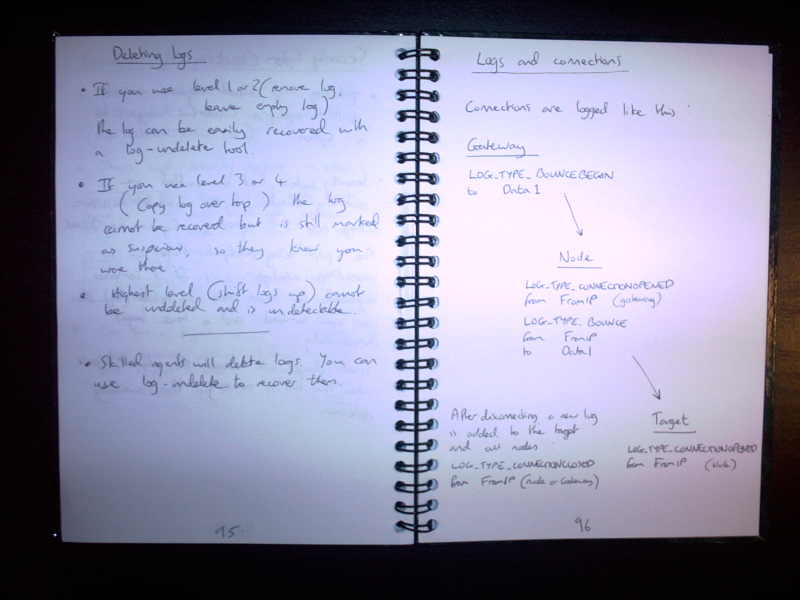 Deleting logs
• If you use level 1 or 2 (remove log,
leave empty log)
the log can be easily recovered with
a log-undelete tool.
• If you use level 3 or 4
(Copy log over top) the log
cannot be recoverd but is still marked
as suspicious, so they know you
were there
• Highest level (shift logs up) cannot
be undeleted and is undetectable.
• Skilled agents will delete logs. You can
use log-undelete to recover them.
95
Logs and connections
Connections are logged like this:
Gateway
LOG_TYPE_BOUNCEBEGIN
to Data1
Node
LOG_TYPE_CONNECTIONOPENED
from FromIP (gateway)
LOG_TYPE_BOUNCE
from FromIP
to Data1
Target
LOG_TYPE_CONNECTIONOPENED
from FromIP (Node)
After disconnecting a new log
is added to the target
and all nodes:
LOG_TYPE_CONNECTIONCLOSED
from FromIP (node or Gateway)
96